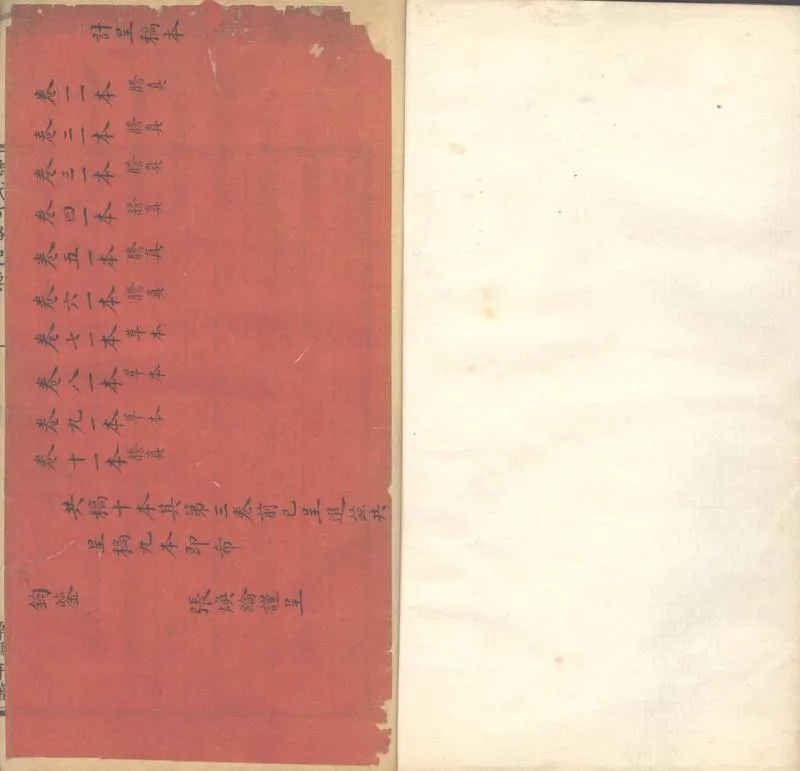 計呈稿本
卷一一本謄真
卷二一本謄真
卷三一本謄真
卷四一本謄真
卷五一本謄真
卷六一本謄真
卷七一本草本
卷八一本草本
卷九一本草本
卷十一本謄真
共稿十本其第三卷前已呈進茲共
呈稿九本即布
鈞鑒 張煥綸謹呈